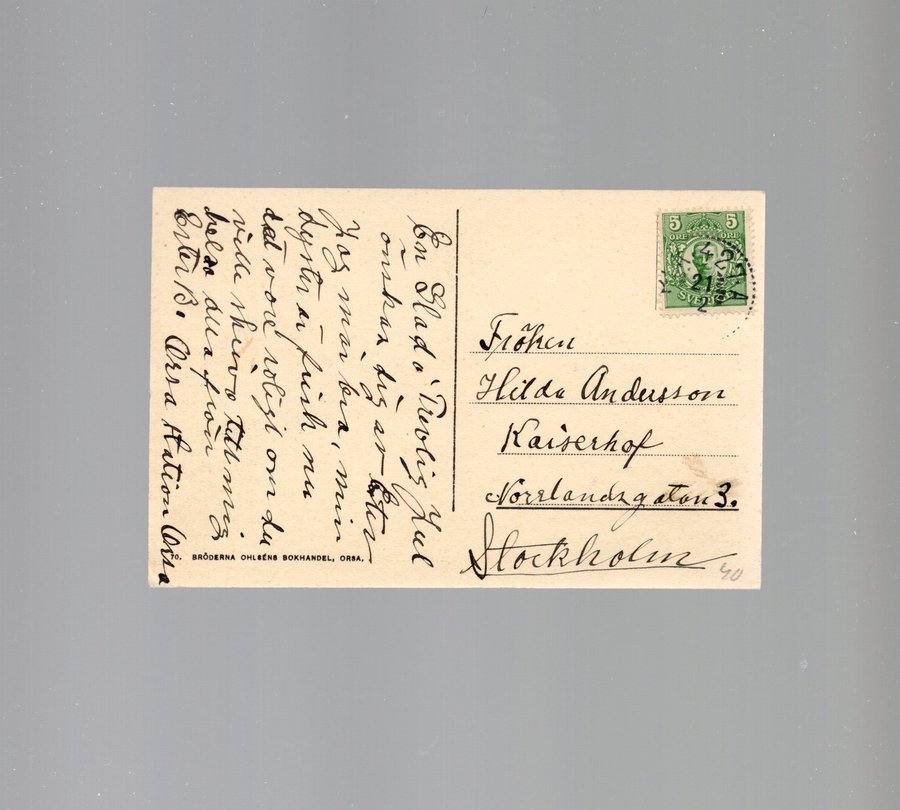 En Glad o Trevlig Jul
önskas dig av Ester
Jag mår bra, min
syster är frisk nu
det vore roligt om du
ville skriva till mig
helsa alla från
Ester B. Orsa station Orsa
70. BRÖDERNA OHLSÉNS BOKHANDEL, ORSA.
5 5
ÖRE ÖRE
SVERIGE
21
Fröken
Hilda Andersson
Kaiserhof
Norrlandsgatan 3.
Stockholm
40